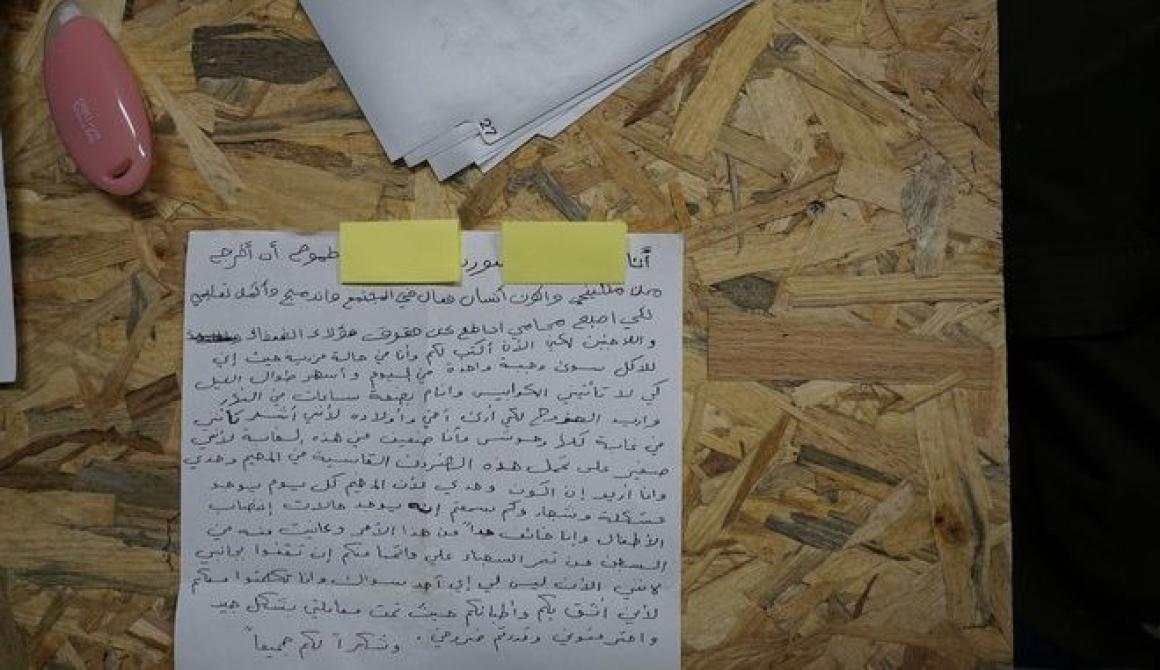 27
أنا سور طموحي أن أخرج
من مليتي واكون أنسان فعال في المجتمع واندمج وأكمل تعليمي
لكي اصبح محامي ادافع عن حقوق هؤلاء الضعفاء
و اللاجئين لكي الأن أكتب لكم وأنا في حالة مزرية حيث إني
للاكل سوى وجبة واحدة في ليوم وأسهر طوال اليل
كي لا تأتيني الكوابيس وانام بضعة ساعات في النهار
واريد الخروج لكي أرى أخي وأولاده لأنني أشعر كأنني
في غابة كلا وحوش وأنا ضعيف في هذه الغابة لأنني
صغير على تحمل هذه الضروف القاسية في المخيم وحدي
وانا اريد إن اكون وحدي لأن المخيم كل يوم يوجد
مشكلة وشجار وكم سمعتم إنه يوجد حالات إغتصاب
الأطفال وانا خائف جداً من هذا الأمر وعانيت منه في
السجن من تمر السجناء علي واتمنا منكم إن تقفوا بجانبي
لانني الأن ليس لي إي أحد سواك وانا تكلمتوا معكم
لأني اثق بكم وأطبائكم حيث تمت معاملتي بشكل جيد
واحترمتوني وقدرتم ضروفي . وشكراً لكم جميعاً